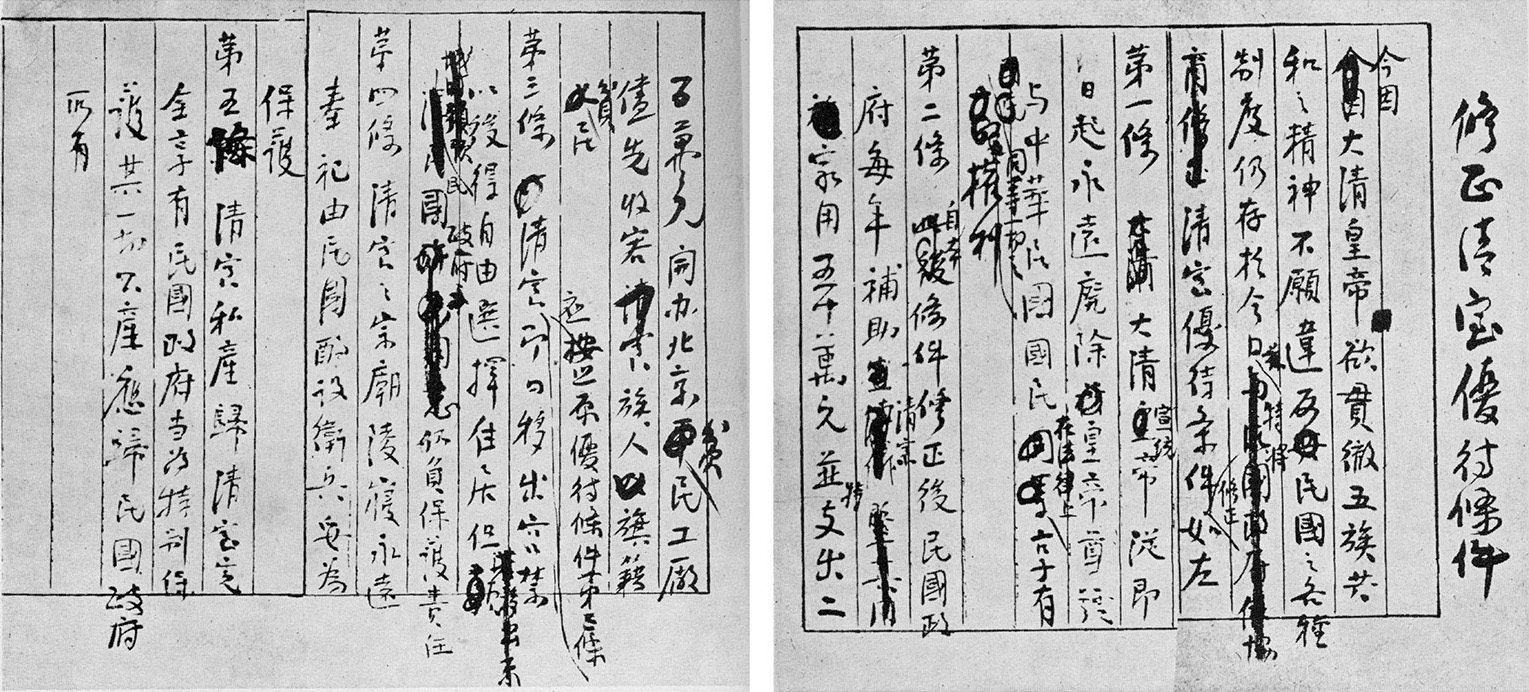 修正清室優待條件
今因
大清皇帝欲貫徹五族共
和之精神不願違反民國之各種
制度仍存於今日
茲特將
清室優待条件修正如左
第一條 大清宣統帝從即
日起永遠廢除皇帝尊號
与中華民國國民在法律上享有
同等
權利
第二條 自本條件修正後民國政
府每年補助清室
家用五十萬元並特支出二
百萬元開办北京貧民工廠
儘先收容旗籍
貧民
第三條 清室應按照原優待條件第三條即日移出宮禁
以後得自由選擇住居但
民國政府仍負保護責任
第四條 清室之宗廟陵寢永遠
奉祀由民國酌設衛兵妥為
保護
第五條 清室私產歸清室完
全享有民國政府当為特别保
護其一切公產應歸民國政府
所有